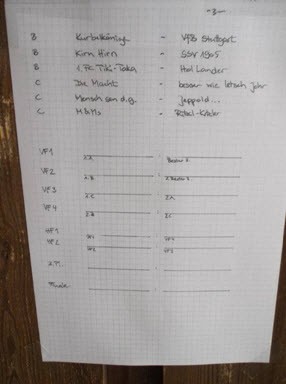 - 3 -
B Kurbelkönig - VFB Stuttgart
B Kirn Hirn - SSV 1905
B 1. FC Tiki-Taka - Hol Länder
C Die Macht - besser wie letsch Johr
C Mensch san d.g. - Jappold...
C M&Ms - Ribel-Kicker
VF1 1.A - Bester 3.
VF2 1.B - 2. Bester 3.
VF3 1.C - 2.A
VF4 2.B - 2.C
HF1 VF1 - VF4
HF2 VF2 - VF3
3.Pl. -
Finale -